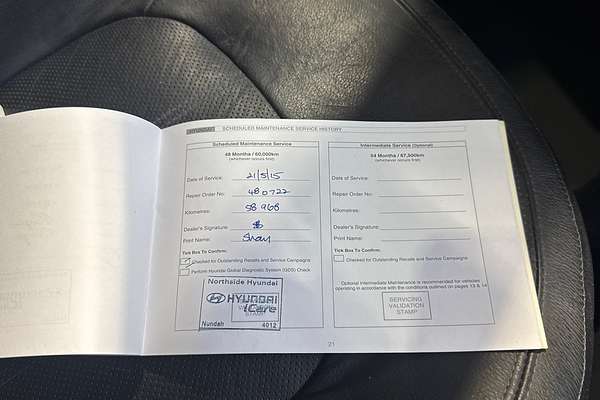 HYUNDAI SCHEDULED MAINTENANCE SERVICE HISTORY
Scheduled Maintenance Service
48 Months / 60,000km
(whichever occurs first)
Date of Service: 21/5/15
Repair Order No: 480722
Kilometres: 58968
Dealer's Signature:
Print Name: Shay
Tick Box To Confirm:
Checked for Outstanding Recalls and Service Campaigns
Perform Hyundai Global Diagnostic System (GDS) Check
Northside Hyundai
HYUNDAI
iCare
STAMP
Nundah 4012
Intermediate Service (Optional)
54 Months / 67,500km
(whichever occurs first)
Date of Service:
Repair Order No:
Kilometres:
Dealer's Signature:
Print Name:
Tick Box To Confirm:
Checked for Outstanding Recalls and Service Campaigns
Optional Intermediate Maintenance is recommended for vehicles
operating in accordance with the conditions outlined on pages 13 & 14
SERVICING
VALIDATION
STAMP
21